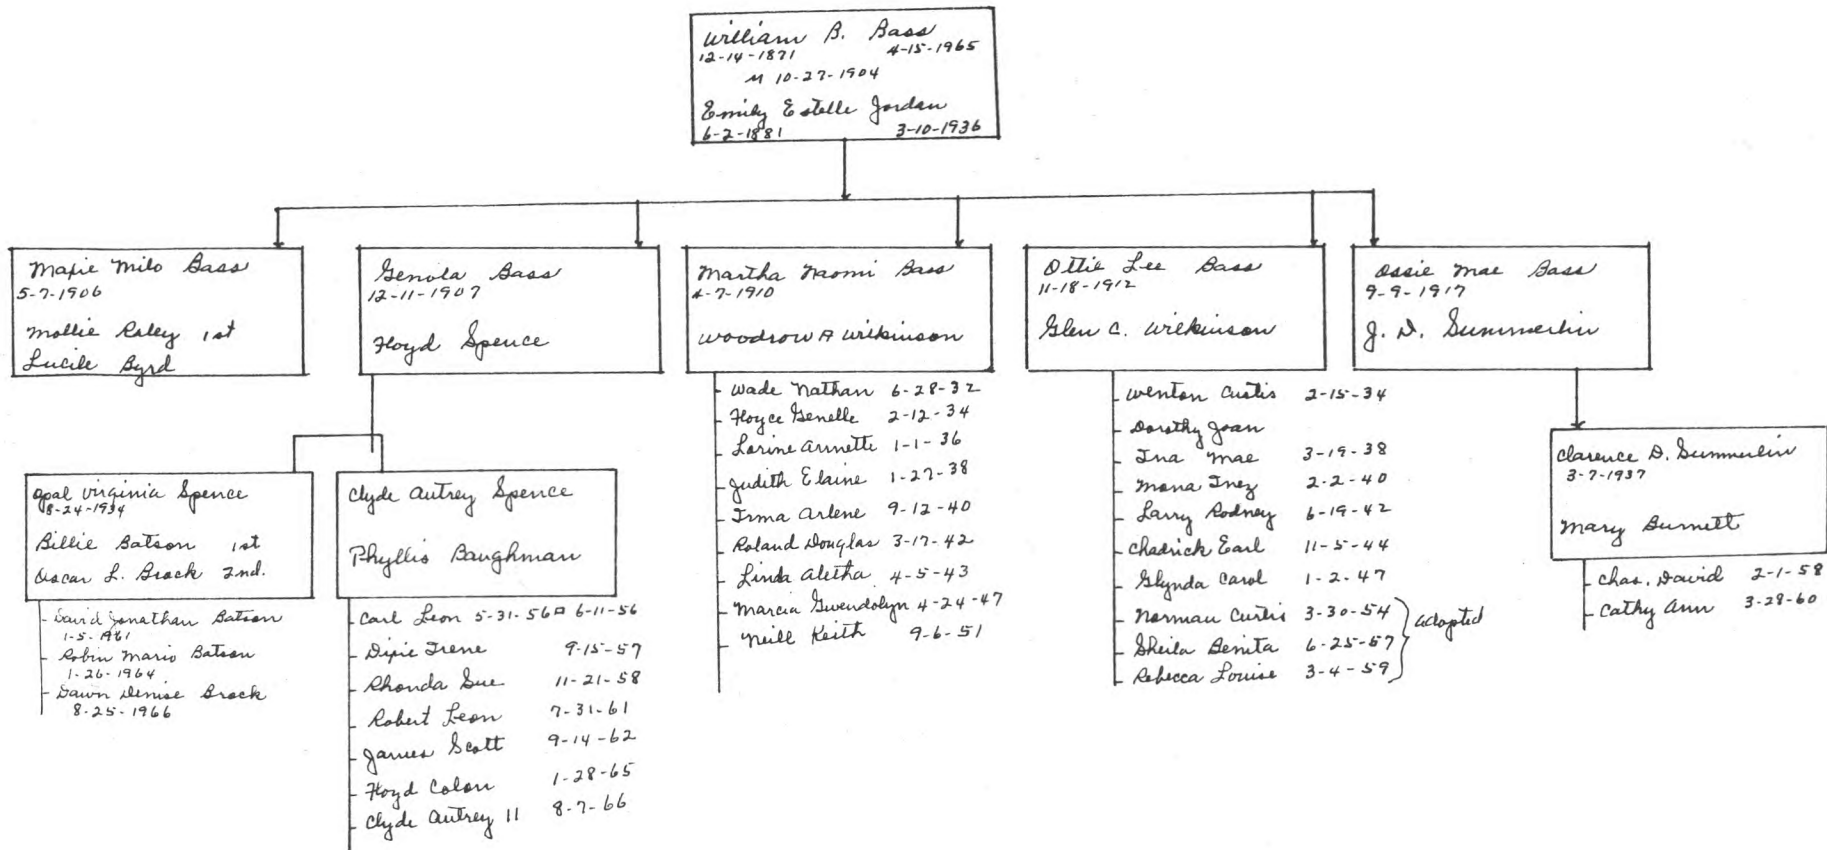 William B. Bass
12-14-1871 4-15-1965
M 10-27-1904
Emily Estelle Jordan
6-2-1881 3-10-1936
Maxie Milo Bass
5-7-1906
Mollie Raley 1st
Lucile Byrd
Genola Bass
12-11-1907
Floyd Spence
Martha Naomi Bass
4-7-1910
Woodrow A Wilkinson
Ottie Lee Bass
11-18-1912
Glen C. Wilkinson
Ossie Mae Bass
9-9-1917
J. D. Summerlin
Opal Virginia Spence
8-24-1934
Billie Batson 1st
Oscar L. Brock 2nd.
David Jonathan Batson
1-5-1961
Robin Mario Batson
1-26-1964
Dawn Denise Brock
8-25-1966
Clyde Autrey Spence
Phyllis Baughman
Carl Leon 5-31-56 D 6-11-56
Dixie Irene 9-15-57
Rhonda Sue 11-21-58
Robert Leon 7-31-61
James Scott 9-14-62
Floyd Colon 1-28-65
Clyde Autrey II 8-7-66
Wade Nathan 6-28-32
Floyce Genelle 2-12-34
Lorine Annette 1-1-36
Judith Elaine 1-27-38
Irma Arlene 9-12-40
Roland Douglas 3-17-42
Linda Aletha 4-5-43
Marcia Gwendolyn 4-24-47
Neill Keith 9-6-51
Wenton Curtis 2-15-34
Dorothy Joan
Ina Mae 3-19-38
Mona Inez 2-2-40
Larry Rodney 6-19-42
Chadrick Earl 11-5-44
Glynda Carol 1-2-47
Norman Curtis 3-30-54
Sheila Benita 6-25-57
Rebecca Louise 3-4-59
adopted
Clarence D. Summerlin
3-7-1937
Mary Burnett
Chas. David 2-1-58
Cathy Ann 3-28-60